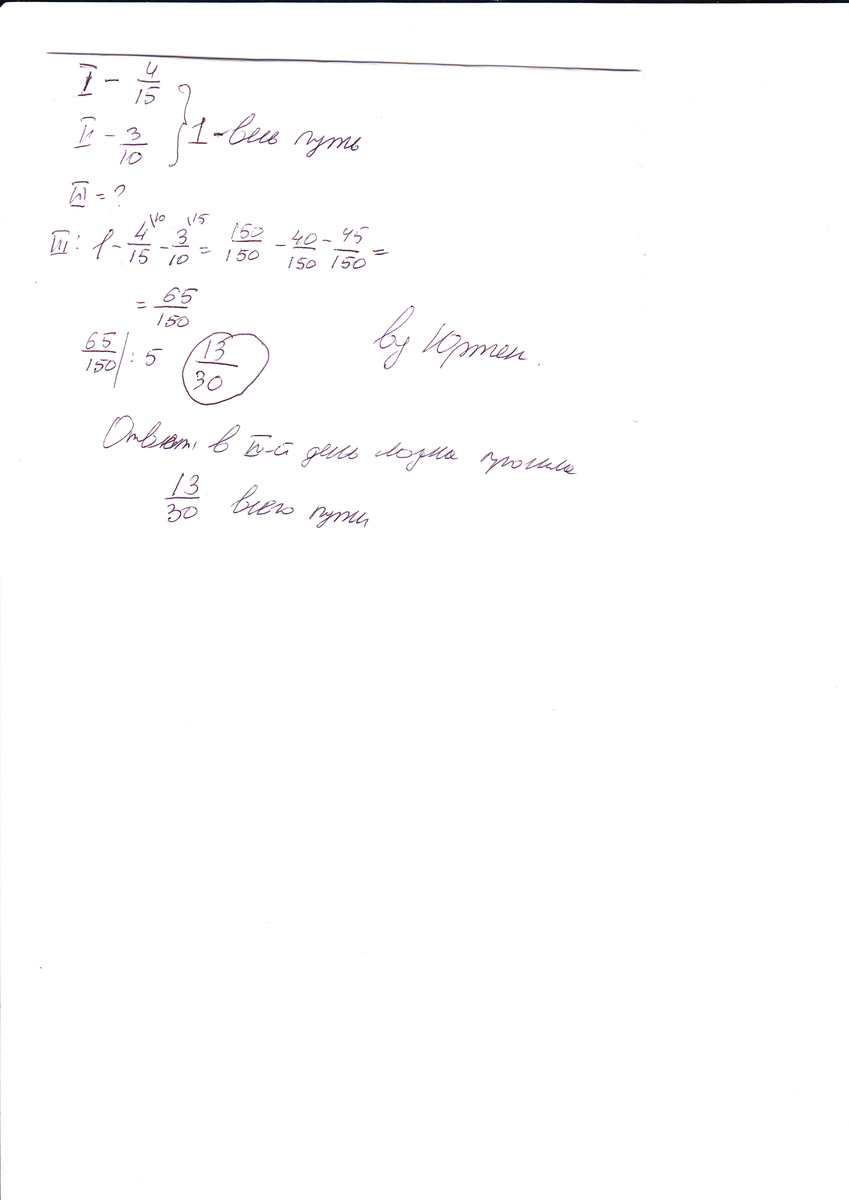 I - 4/15
II - 3/10 } 1 - весь путь
III = ?
III: 1 - 4/15 \10 - 3/10 \15 = 150/150 - 40/150 - 45/150 =
= 65/150
65/150 | : 5 13/30
by Юртен.
Ответ: в III-й день лодка прошла
13/30 всего пути